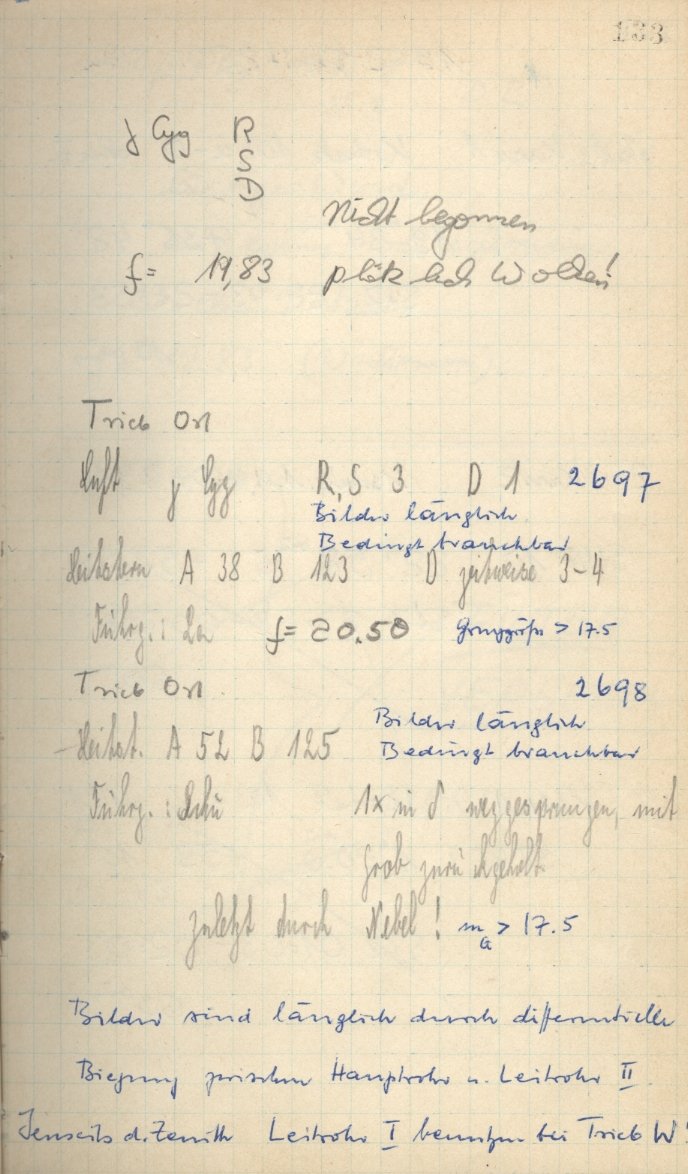 133
γ Cyg R
S
D
Nicht begonnen
f = 19,83 plötzlich Wolken!
Trieb Ost
Luft γ Cyg R, S 3 D 1 2697
Bilder länglich
Bedingt brauchbar
Leitstern A 38 B 123 D zeitweise 3-4
Führg.: f = 20.50 Grenzgröße > 17.5
Trieb Ost 2698
Bilder länglich
Leitst. A 52 B 125 Bedingt brauchbar
Führg.: 1x in δ weggesprungen, mit
Grob zurückgeholt.
zuletzt durch Nebel! m_G > 17.5
Bilder sind länglich durch differentielle
Biegung zwischen Hauptrohr u. Leitrohr II.
Jenseits d. Zenith Leitrohr I benutzen bei Trieb W!